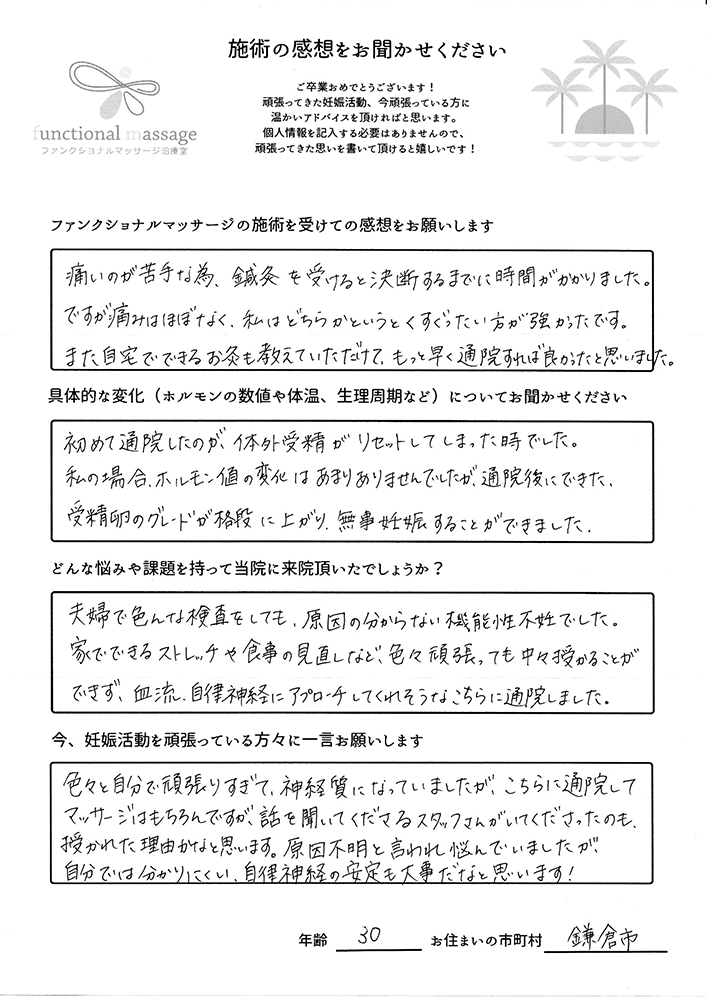 施術の感想をお聞かせください
ご卒業おめでとうございます！
頑張ってきた妊娠活動、今頑張っている方に
温かいアドバイスを頂ければと思います。
個人情報を記入する必要はありませんので、
頑張ってきた思いを書いて頂けると嬉しいです！
functional massage
ファンクショナルマッサージ治療室
ファンクショナルマッサージの施術を受けての感想をお願いします
痛いのが苦手な為、鍼灸を受けると決断するまでに時間がかかりました。
ですが痛みはほぼなく、私はどちらかというとくすぐったい方が強かったです。
また自宅でできるお灸も教えていただけて、もっと早く通院すれば良かったと思いました。
具体的な変化（ホルモンの数値や体温、生理周期など）についてお聞かせください
初めて通院したのが、体外受精がリセットしてしまった時でした。
私の場合、ホルモン値の変化はあまりありませんでしたが、通院後にできた、
受精卵のグレードが格段に上がり、無事妊娠することができました。
どんな悩みや課題を持って当院に来院頂いたでしょうか？
夫婦で色んな検査をしても、原因の分からない機能性不妊でした。
家でできるストレッチや食事の見直しなど、色々頑張っても中々授かることが
できず、血流、自律神経にアプローチしてくれそうなこちらに通院しました。
今、妊娠活動を頑張っている方々に一言お願いします
色々と自分で頑張りすぎて、神経質になっていましたが、こちらに通院して
マッサージはもちろんですが、話を聞いてくださるスタッフさんがいてくださったのも、
授かれた理由かなと思います。原因不明と言われ悩んでいましたが、
自分では分かりにくい、自律神経の安定も大事だなと思います！
年齢 30 お住まいの市町村 鎌倉市